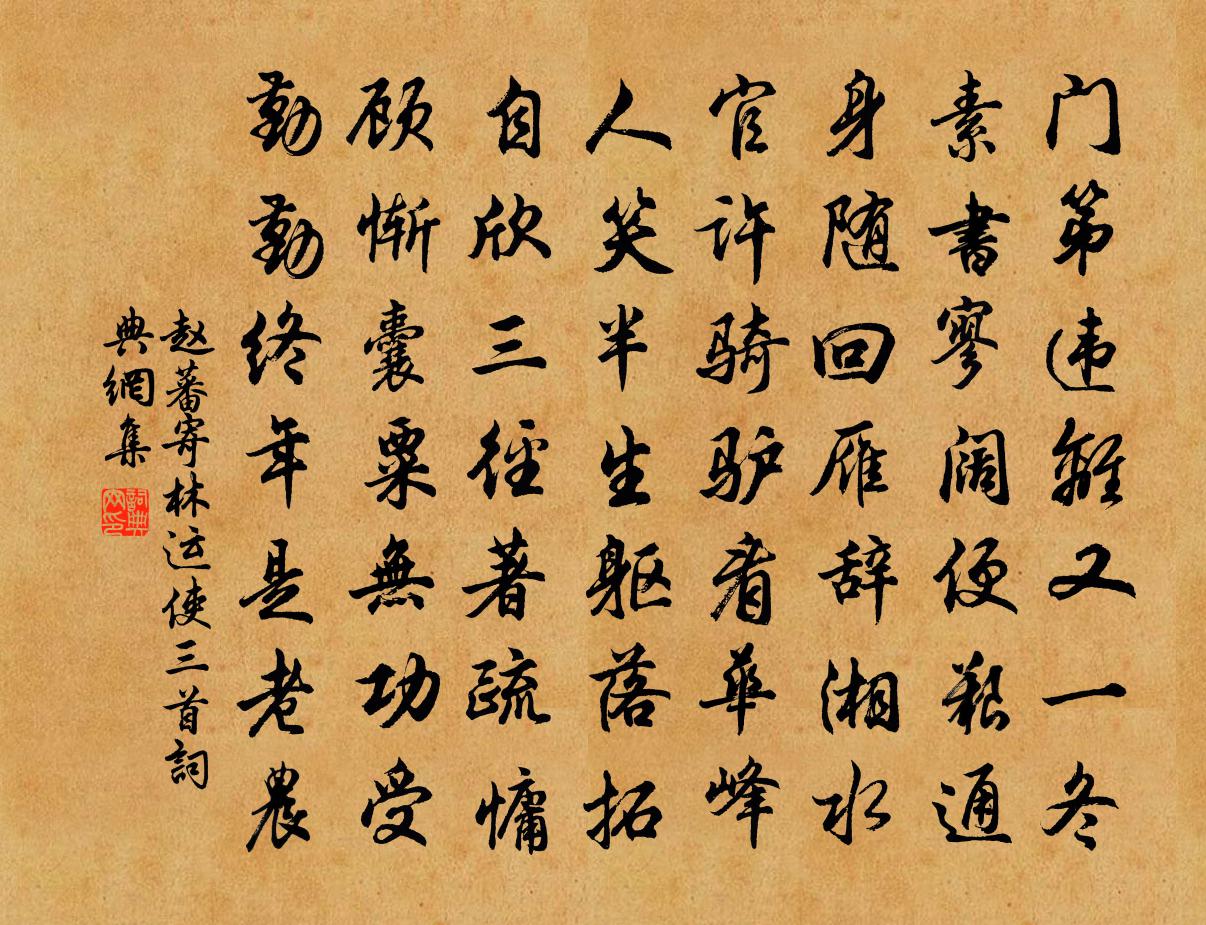 门第违離又一冬
素書寥阔便艱通
身随回雁辞湘水
官许骑驴看華峰
人笑半生躯落拓
自欣三径著疏慵
顾惭囊粟無功受
勤勤终年是老農
赵蕃寄林运使三首詞
典網集
詞典网印